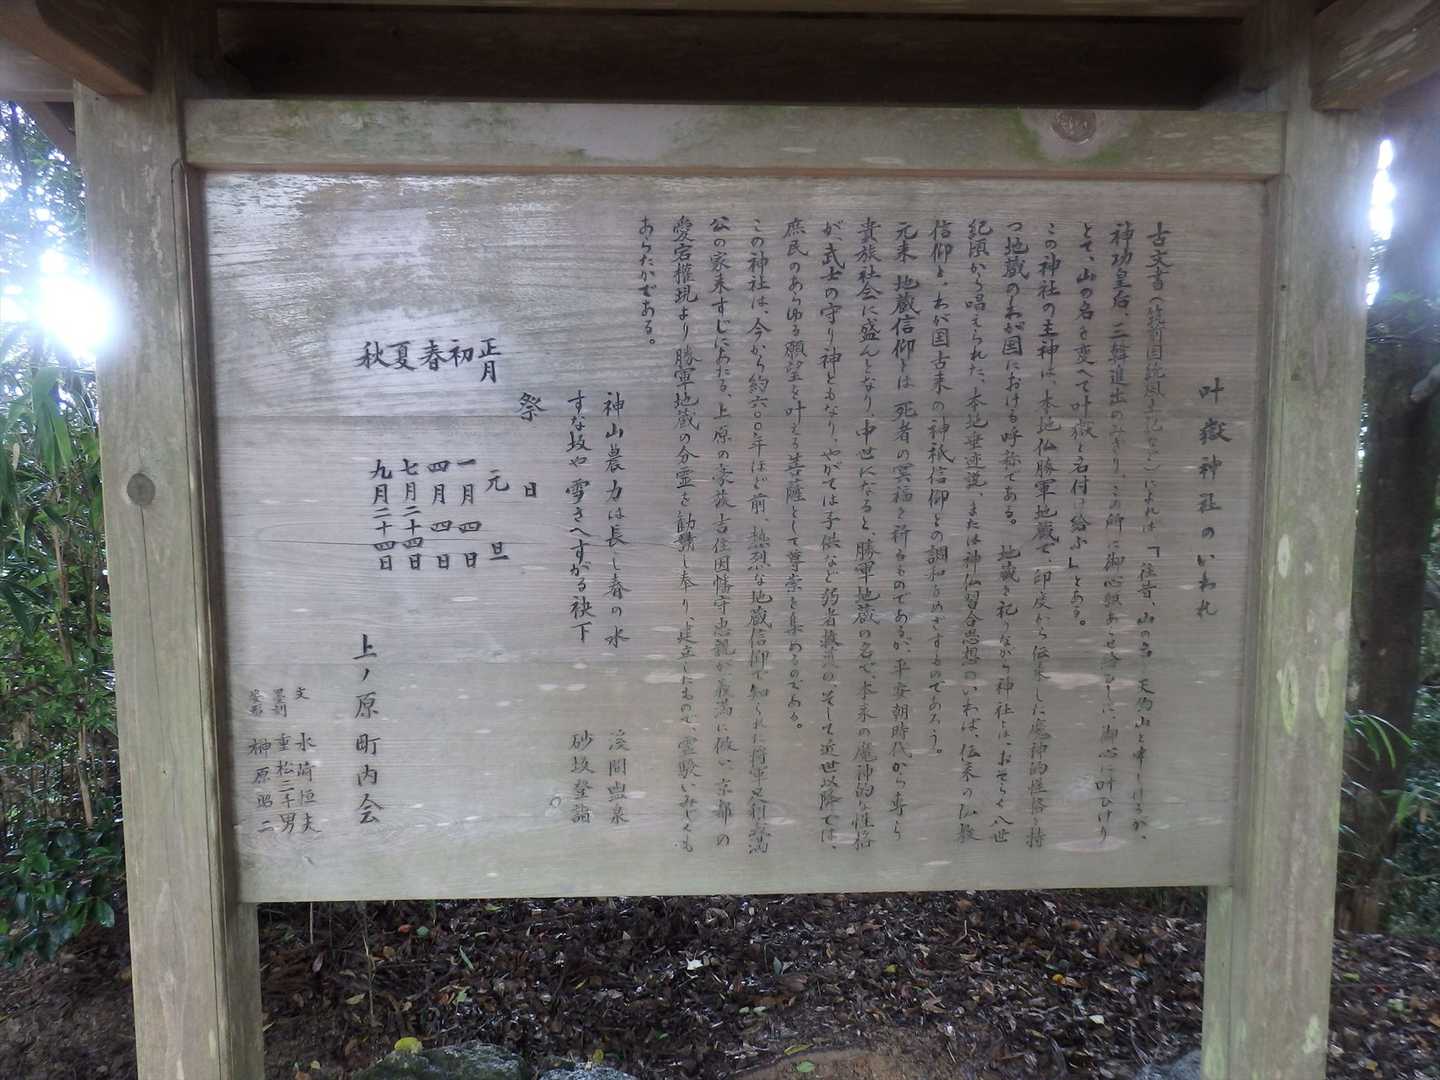 叶嶽神社のいわれ
古文書(筑前国続風土記など)によれば「往昔、山の名を天狗山と申しけるが、
神功皇后、三韓進出のみぎり、この所に御心願あらせ給ひしに、御心に叶ひけり
とて、山の名を変へて叶嶽と名付け給ふ」とある。
この神社の主神は、本地仏勝軍地蔵で、印度から伝来した魔神的性格を持
つ地蔵のわが国における呼称である。地蔵を祀りながら神社とは、おそらく八世
紀頃から唱えられた、本地垂迹説、または神仏習合思想のいわば、伝来の仏教
信仰と、わが国古来の神祇信仰との調和をめざすものであろう。
元来、地蔵信仰とは、死者の冥福を祈るものであるが、平安朝時代から専ら
貴族社会に盛んとなり、中世になると、勝軍地蔵の名で、本来の魔神的な性格
が、武士の守り神ともなり、やがては子供など弱者救済の、そして近世以降では、
庶民のあらゆる願望を叶える菩薩として尊崇を集めるのである。
この神社は、今から約六〇〇年ほど前、熱烈な地蔵信仰で知られた将軍足利義満
公の家来すじにあたる、上原の豪族吉住因幡守忠親が義満に倣い、京都の
愛宕権現より勝軍地蔵の分霊を勧請し奉り、建立したもので、霊験いみじくも
あらたかである。
神山農力は長し春の水 渓間幽泉
すな坂や雪さへすがる袂下 砂坂登詣
祭日
正月 元旦
初 一月四日
春 四月四日
夏 七月二十四日
秋 九月二十四日
上ノ原町内会
文 水崎恒夫
重松二千男
榊原昭二